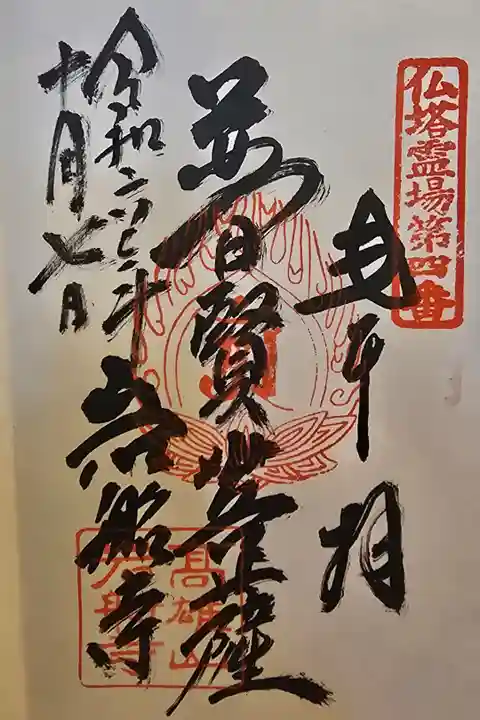 仏塔霊場第四番
奉拝
普賢菩薩
令和
年
十月七日
岩船寺
高雄山
岩船寺